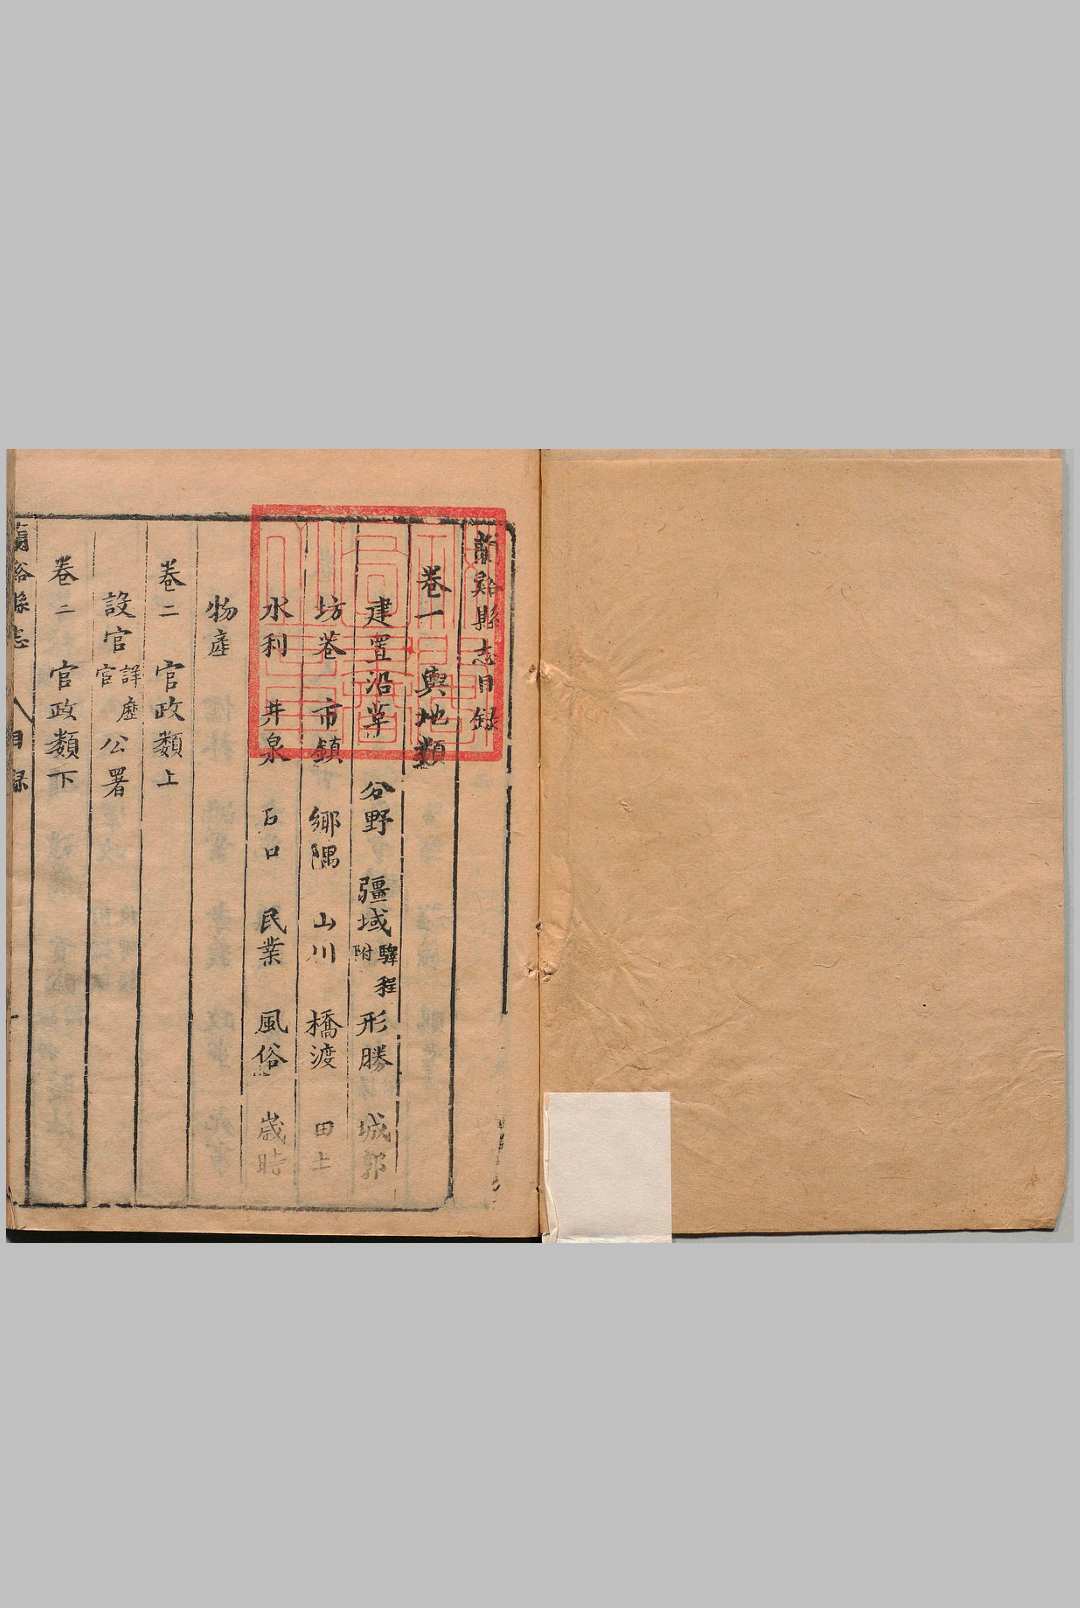 蘭谿縣志目錄
卷一 輿地類
建置沿革 分野 疆域驛程附 形勝 城郭
坊巷 市鎮 鄉隅 山川 橋渡 田土
水利 井泉 戶口 民業 風俗 歲時
物產
卷二 官政類上
設官詳歷官 公署
卷二 官政類下
蘭谿縣志 目錄 一